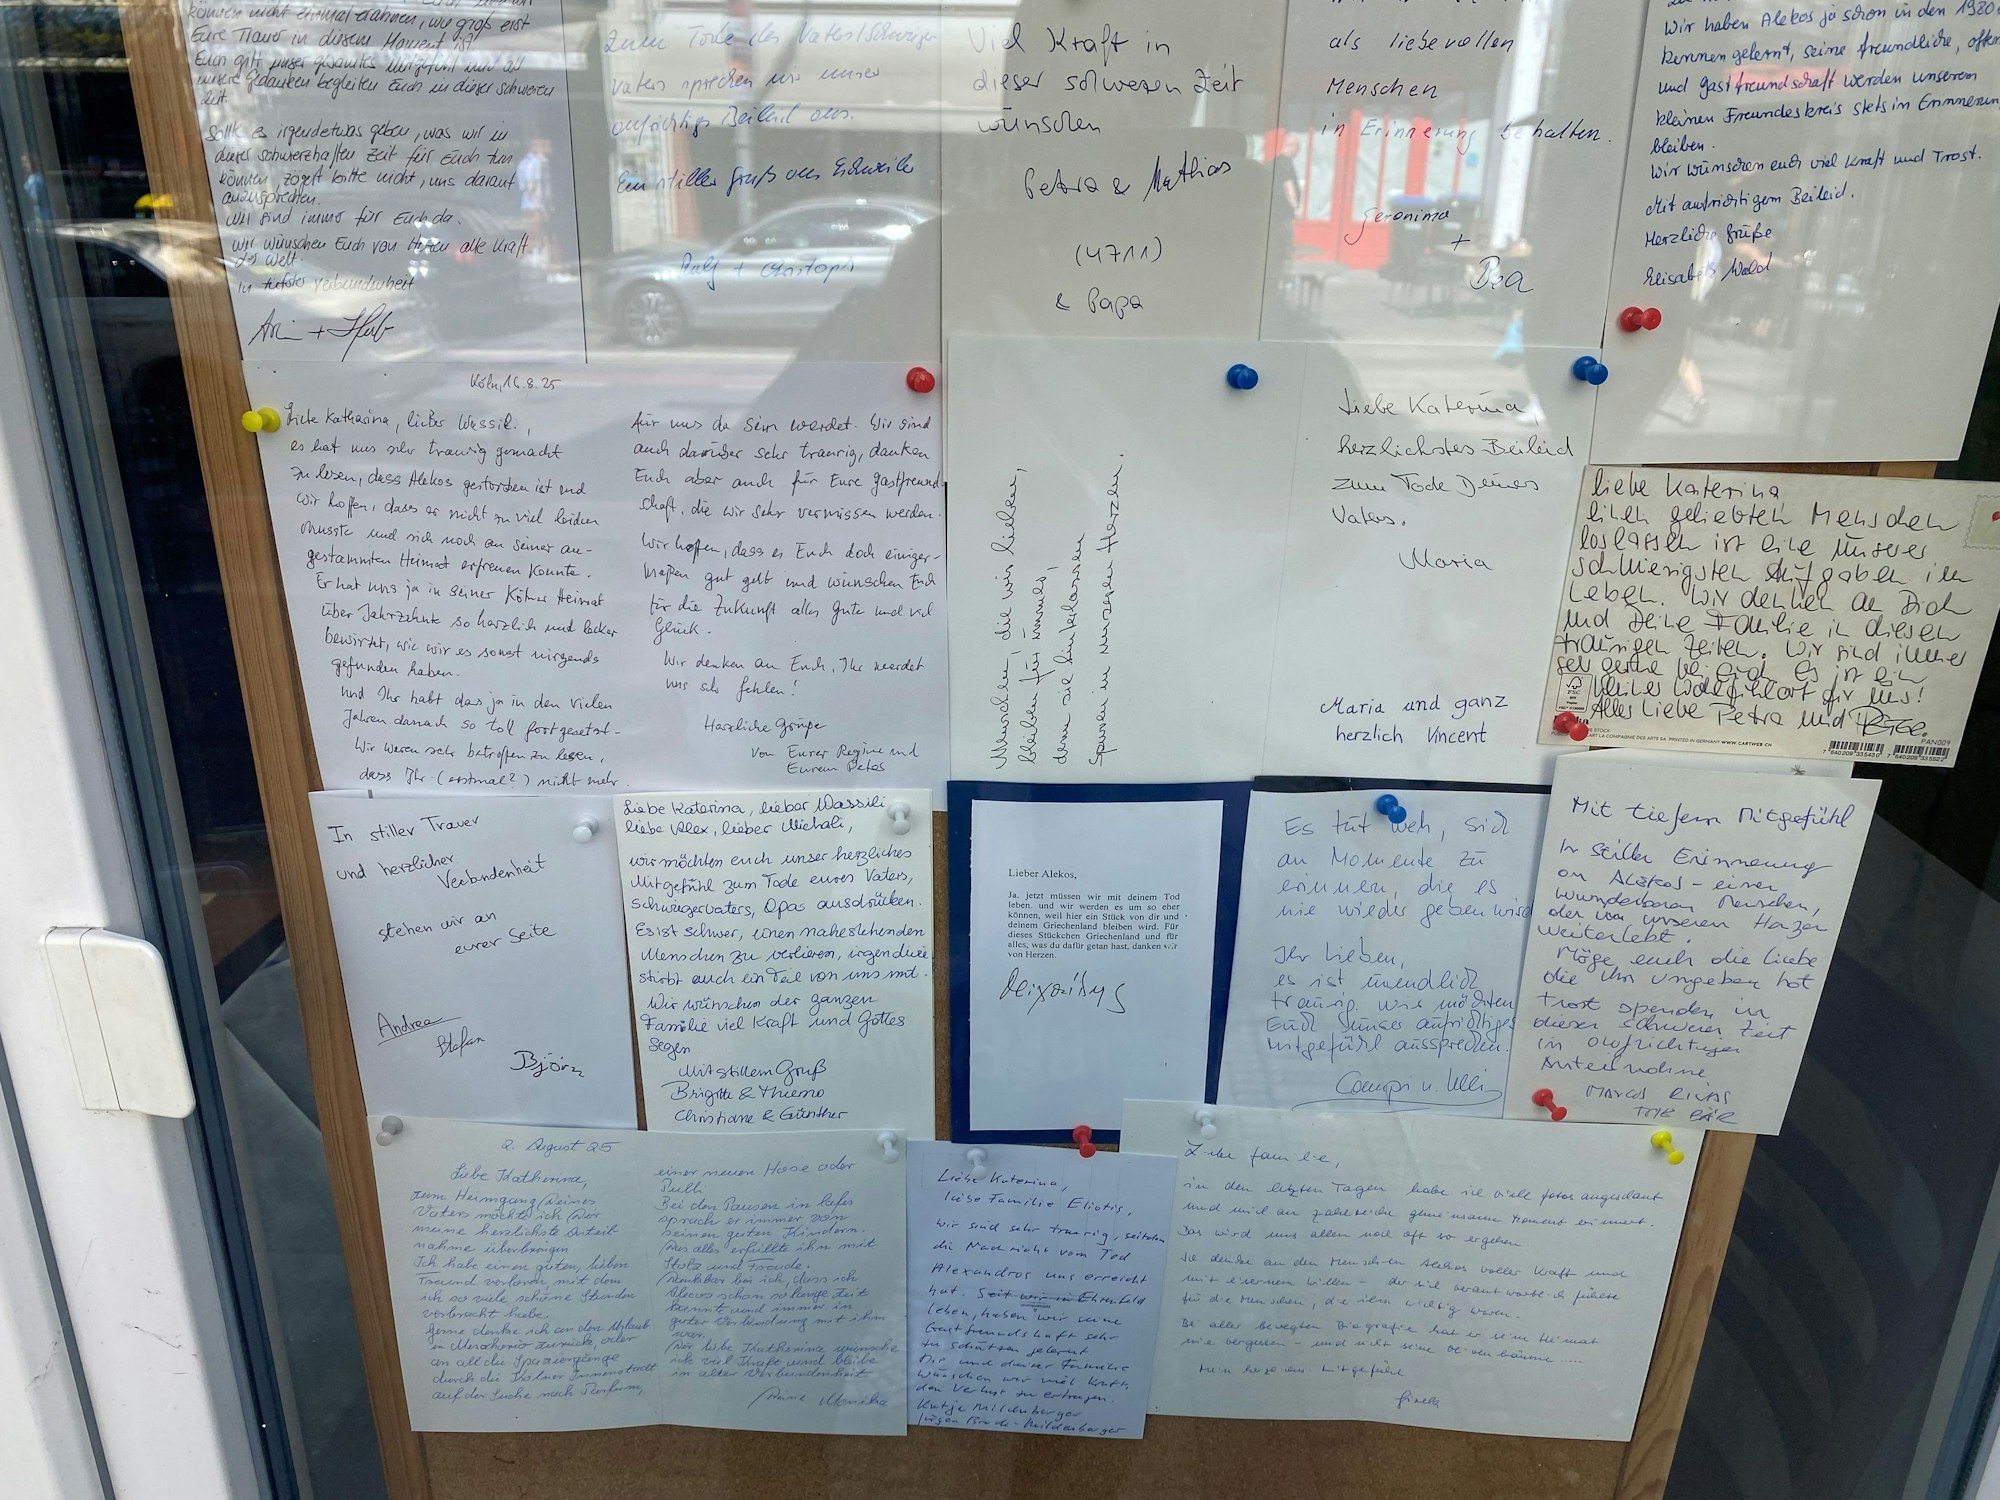 können nicht einmal erahnen, wie groß erst
Eure Trauer in diesem Moment ist
Euch gilt unser gesamtes Mitgefühl und all
unsere Gedanken begleiten Euch in dieser schweren
Zeit.
Sollte es irgendetwas geben, was wir in
dieser schmerzhaften Zeit für Euch tun
können, zögert bitte nicht, uns darauf
anzusprechen.
Wir sind immer für Euch da.
Wir wünschen Euch von Herzen alle Kraft
der Welt.
In tiefster Verbundenheit
Zum Tode des Vaters/Schwieger
vaters sprechen wir unser
aufrichtiges Beileid aus.
Ein stiller Gruß aus
Ralf + Christoph
Viel Kraft in
dieser schweren Zeit
wünschen
Petra & Mathias
(4711)
& Papa
als liebevollen
Menschen
in Erinnerung behalten.
Geronimo
+
Bea
Wir haben Alekos ja schon in den 1980
kennen gelernt, seine freundliche, offen
und Gastfreundschaft werden unserem
kleinen Freundeskreis stets in Erinnerung
bleiben.
Wir wünschen euch viel Kraft und Trost.
Mit aufrichtigem Beileid.
Herzliche Grüße
Elisabeth Wald
Köln, 16.8.25
Liebe Katharina, lieber Wassili,
es hat uns sehr traurig gemacht
zu lesen, dass Alekos gestorben ist und
wir hoffen, dass er nicht zu viel leiden
musste und sich noch an seiner an-
gestammten Heimat erfreuen konnte.
Er hat uns ja in seiner Kölner Heimat
über Jahrzehnte so herzlich und lecker
bewirtet, wie wir es sonst nirgends
gefunden haben.
Und Ihr habt das ja in den vielen
Jahren danach so toll fortgesetzt.
Wir waren sehr betroffen zu lesen,
dass Ihr (erstmal?) nicht mehr
für uns da sein werdet. Wir sind
auch darüber sehr traurig, danken
Euch aber auch für Eure Gastfreund-
schaft, die wir sehr vermissen werden.
Wir hoffen, dass es Euch doch einiger-
maßen gut geht und wünschen Euch
für die Zukunft alles Gute und viel
Glück.
Wir denken an Euch, Ihr werdet
uns sehr fehlen!
Herzliche Grüße
von Eurer Regine und
Eurem Peter
Menschen, die wir lieben,
bleiben für immer,
denn sie hinterlassen
Spuren in unseren Herzen.
Liebe Katerina,
herzlichstes Beileid
zum Tode Deines
Vaters.
Maria
Maria und ganz
herzlich Vincent
Liebe Katerina
einen geliebten Menschen
loslassen ist eine unserer
schwierigsten Aufgaben im
Leben. Wir denken an Dich
und Deine Familie in diesen
traurigen Zeiten. Wir sind immer
sehr gerne bei euch es ist ein
kleiner Wohlfühlort für uns!
Alles Liebe Petra und PETER.
LA COMPAGNIE DES ARTS SA. PRINTED IN GERMANY WWW.CARTWEB.CN
PAN009
In stiller Trauer
und herzlicher
Verbundenheit
stehen wir an
eurer Seite
Andrea
Stefan
Björn
Liebe Katerina, lieber Wassili
liebe Alex, lieber Michali,
wir möchten euch unser herzliches
Mitgefühl zum Tode eures Vaters,
Schwiegervaters, Opas ausdrücken.
Es ist schwer, einen nahestehenden
Menschen zu verlieren, irgendwie
stirbt auch ein Teil von uns mit.
Wir wünschen der ganzen
Familie viel Kraft und Gottes
Segen
Mit stillem Gruß
Brigitte & Thiemo
Christiane & Günther
Lieber Alekos,
Ja. jetzt müssen wir mit deinem Tod
leben. und wir werden es um so eher
können, weil hier ein Stück von dir und
deinem Griechenland bleiben wird. Für
dieses Stückchen Griechenland und für
alles, was du dafür getan hast, danken wir
von Herzen.
Es tut weh, sich
an Momente zu
erinnern, die es
nie wieder geben wird
Ihr Lieben,
es ist unendlich
traurig. Wir möchten
Euch unser aufrichtiges
Mitgefühl aussprechen.
Mit tiefem Mitgefühl
In stiller Erinnerung
an Alekos – einen
wunderbaren Menschen,
der in unseren Herzen
weiterlebt.
Möge euch die Liebe
die ihn umgeben hat
Trost spenden in
dieser schweren Zeit
in aufrichtiger
Anteilnahme
MARCOS RIVAS
2. August 25
Liebe Katherina,
zum Heimgang Deines
Vaters möchte ich Dir
meine herzlichste Anteil
nahme überbringen
Ich habe einen guten, lieben
Freund verloren, mit dem
ich so viele schöne Stunden
verbracht habe.
Gerne denke ich an den Urlaub
in zurück, oder
an all die Spaziergänge
durch die Kölner Innenstadt
auf der Suche nach Parfum,
einer neuen Hose oder
Pulli.
Bei den Pausen im Cafes
sprach er immer von
seinen guten Kindern.
Das alles erfüllte ihn mit
Stolz und Freude.
Dankbar bin ich, dass ich
Alecos schon so lange Zeit
kannte und immer in
guter Verbindung mit ihm
war.
Dir liebe Katherina wünsche
ich viel Kraft und bleibe
in alter Verbundenheit
Deine Monika
Liebe Katerina,
liebe Familie Eliotis,
wir sind sehr traurig, seitdem
die Nachricht vom Tod
Alexandros uns erreicht
hat. Seit wir in Ehrenfeld
leben, haben wir seine
Gastfreundschaft sehr
zu schätzen gelernt.
Dir und deiner Familie
wünschen wir viel Kraft,
den Verlust zu ertragen.
Katja Mildenberger
Jürgen Mildenberger
Liebe Familie,
in den letzten Tagen habe ich viele Fotos angeschaut
und mich an zahlreiche gemeinsame Momente erinnert.
Das wird uns allen noch oft so ergehen
Ich denke an den Menschen Alekos voller Kraft und
mit eisernem Willen – der sich verantwortlich fühlte
für die Menschen, die ihm wichtig waren.
Bei aller bewegten Biografie hat er seine Heimat
nie vergessen – und nicht seine Olivenbäume .....
Mein herzliches Mitgefühl
Gisela